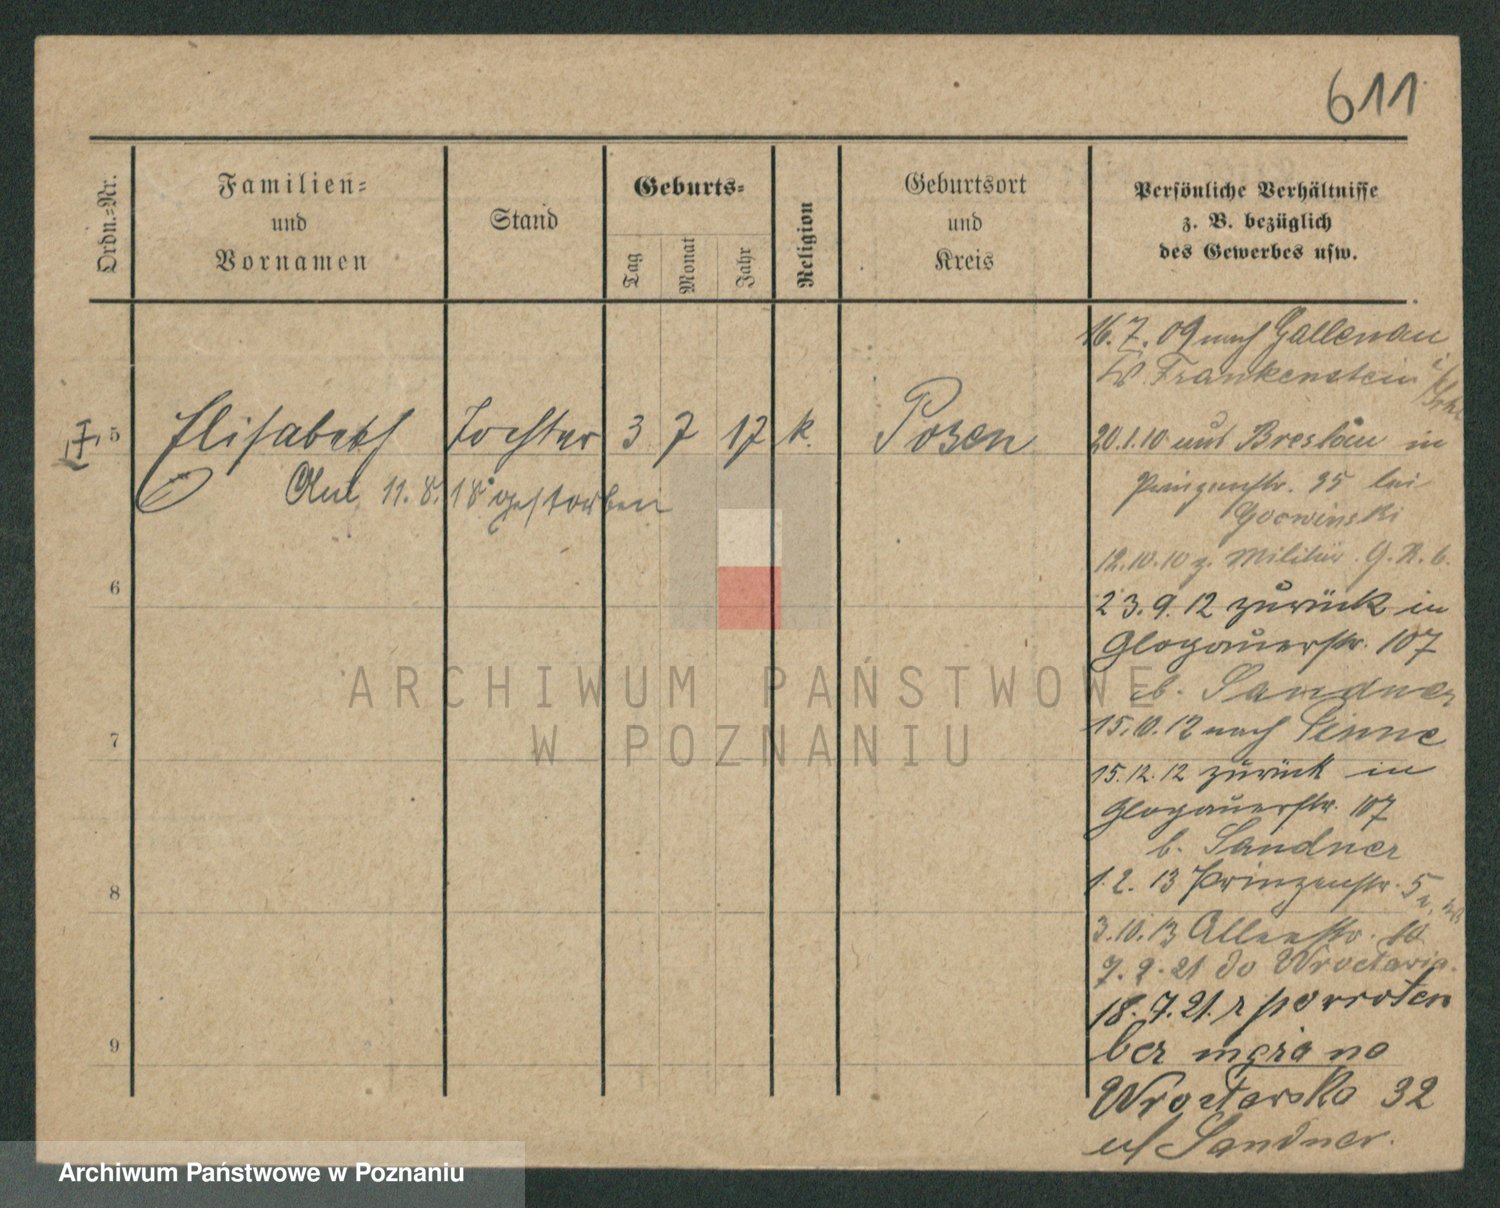 611
Ordn.=Nr.
Familien=
und
Vornamen
Stand
Geburts=
Tag
Monat
Jahr
Religion
Geburtsort
und
Kreis
Persönliche Verhältnisse
z. B. bezüglich
des Gewerbes usw.
5 Elisabeth Tochter 3 7 17 k. Posen
Am 11.8.18 gestorben
6
7
8
9
16.7.09 nach Gallenau
Frankenstein
20.1.10 aus Breslau in
35 bei
12.10.10 z. Militär G. R. 6.
23.9.12 zurück in
Glogauerstr. 107
b. Sandner
15.10.12 nach Pinne
15.12.12 zurück in
Glogauerstr. 107
b. Sandner
1.2.13 Prinzenstr. 5
3.10.13 10
7.2.21 do Wrocławia.
18.7.21. z powrotem
na
Wrocławska 32
Sandner.
ARCHIWUM PAŃSTWOWE
W POZNANIU
Archiwum Państwowe w Poznaniu